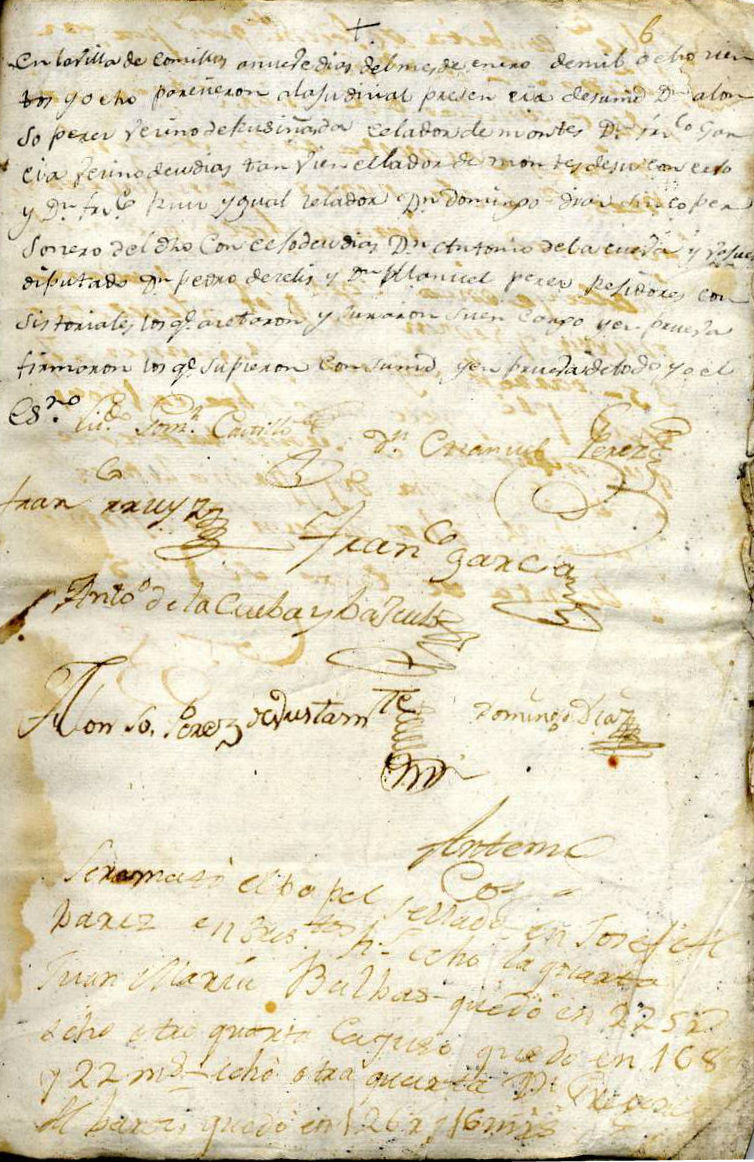 + 6
En la Villa de Comillas a nuebe dias del mes de enero de mil ocho cien
tos y ocho parecieron a la Judicial presencia de su md Dn Alon
so perez vecino de Rudiñada celador de montes Dn Franco Gar
cia vecino de udias tan vien cellador de montes de su concexo
y Dn Franco Ruiz ygual zelador Dn Domingo diaz per
sonero del dho Concexo de udias Dn Antonio de la cueba y
diputado Dn pedro de zelis y Dn Manuel perez Rejidores con
sistoriales los qe acetaron y juraron su en cargo y en prueba
firmaron los qe supieron con su md y en prueba de todo yo el
Esno Castillo Dn Manuel Perez
Fran rruyz
Franco garcia
Anto de la Cueba y
Alonso. Perez de Vustamte Domingo Diaz
Antemi
Coz
Se remató el papel sellado en Josef Al
barez en h echo la quarta
Juan Maria Bulbas quedó en
echo otra quarta quedo en 168
y 22 mds echó otra quarta Dn
Albarez quedó en 126 r y 16 mrs